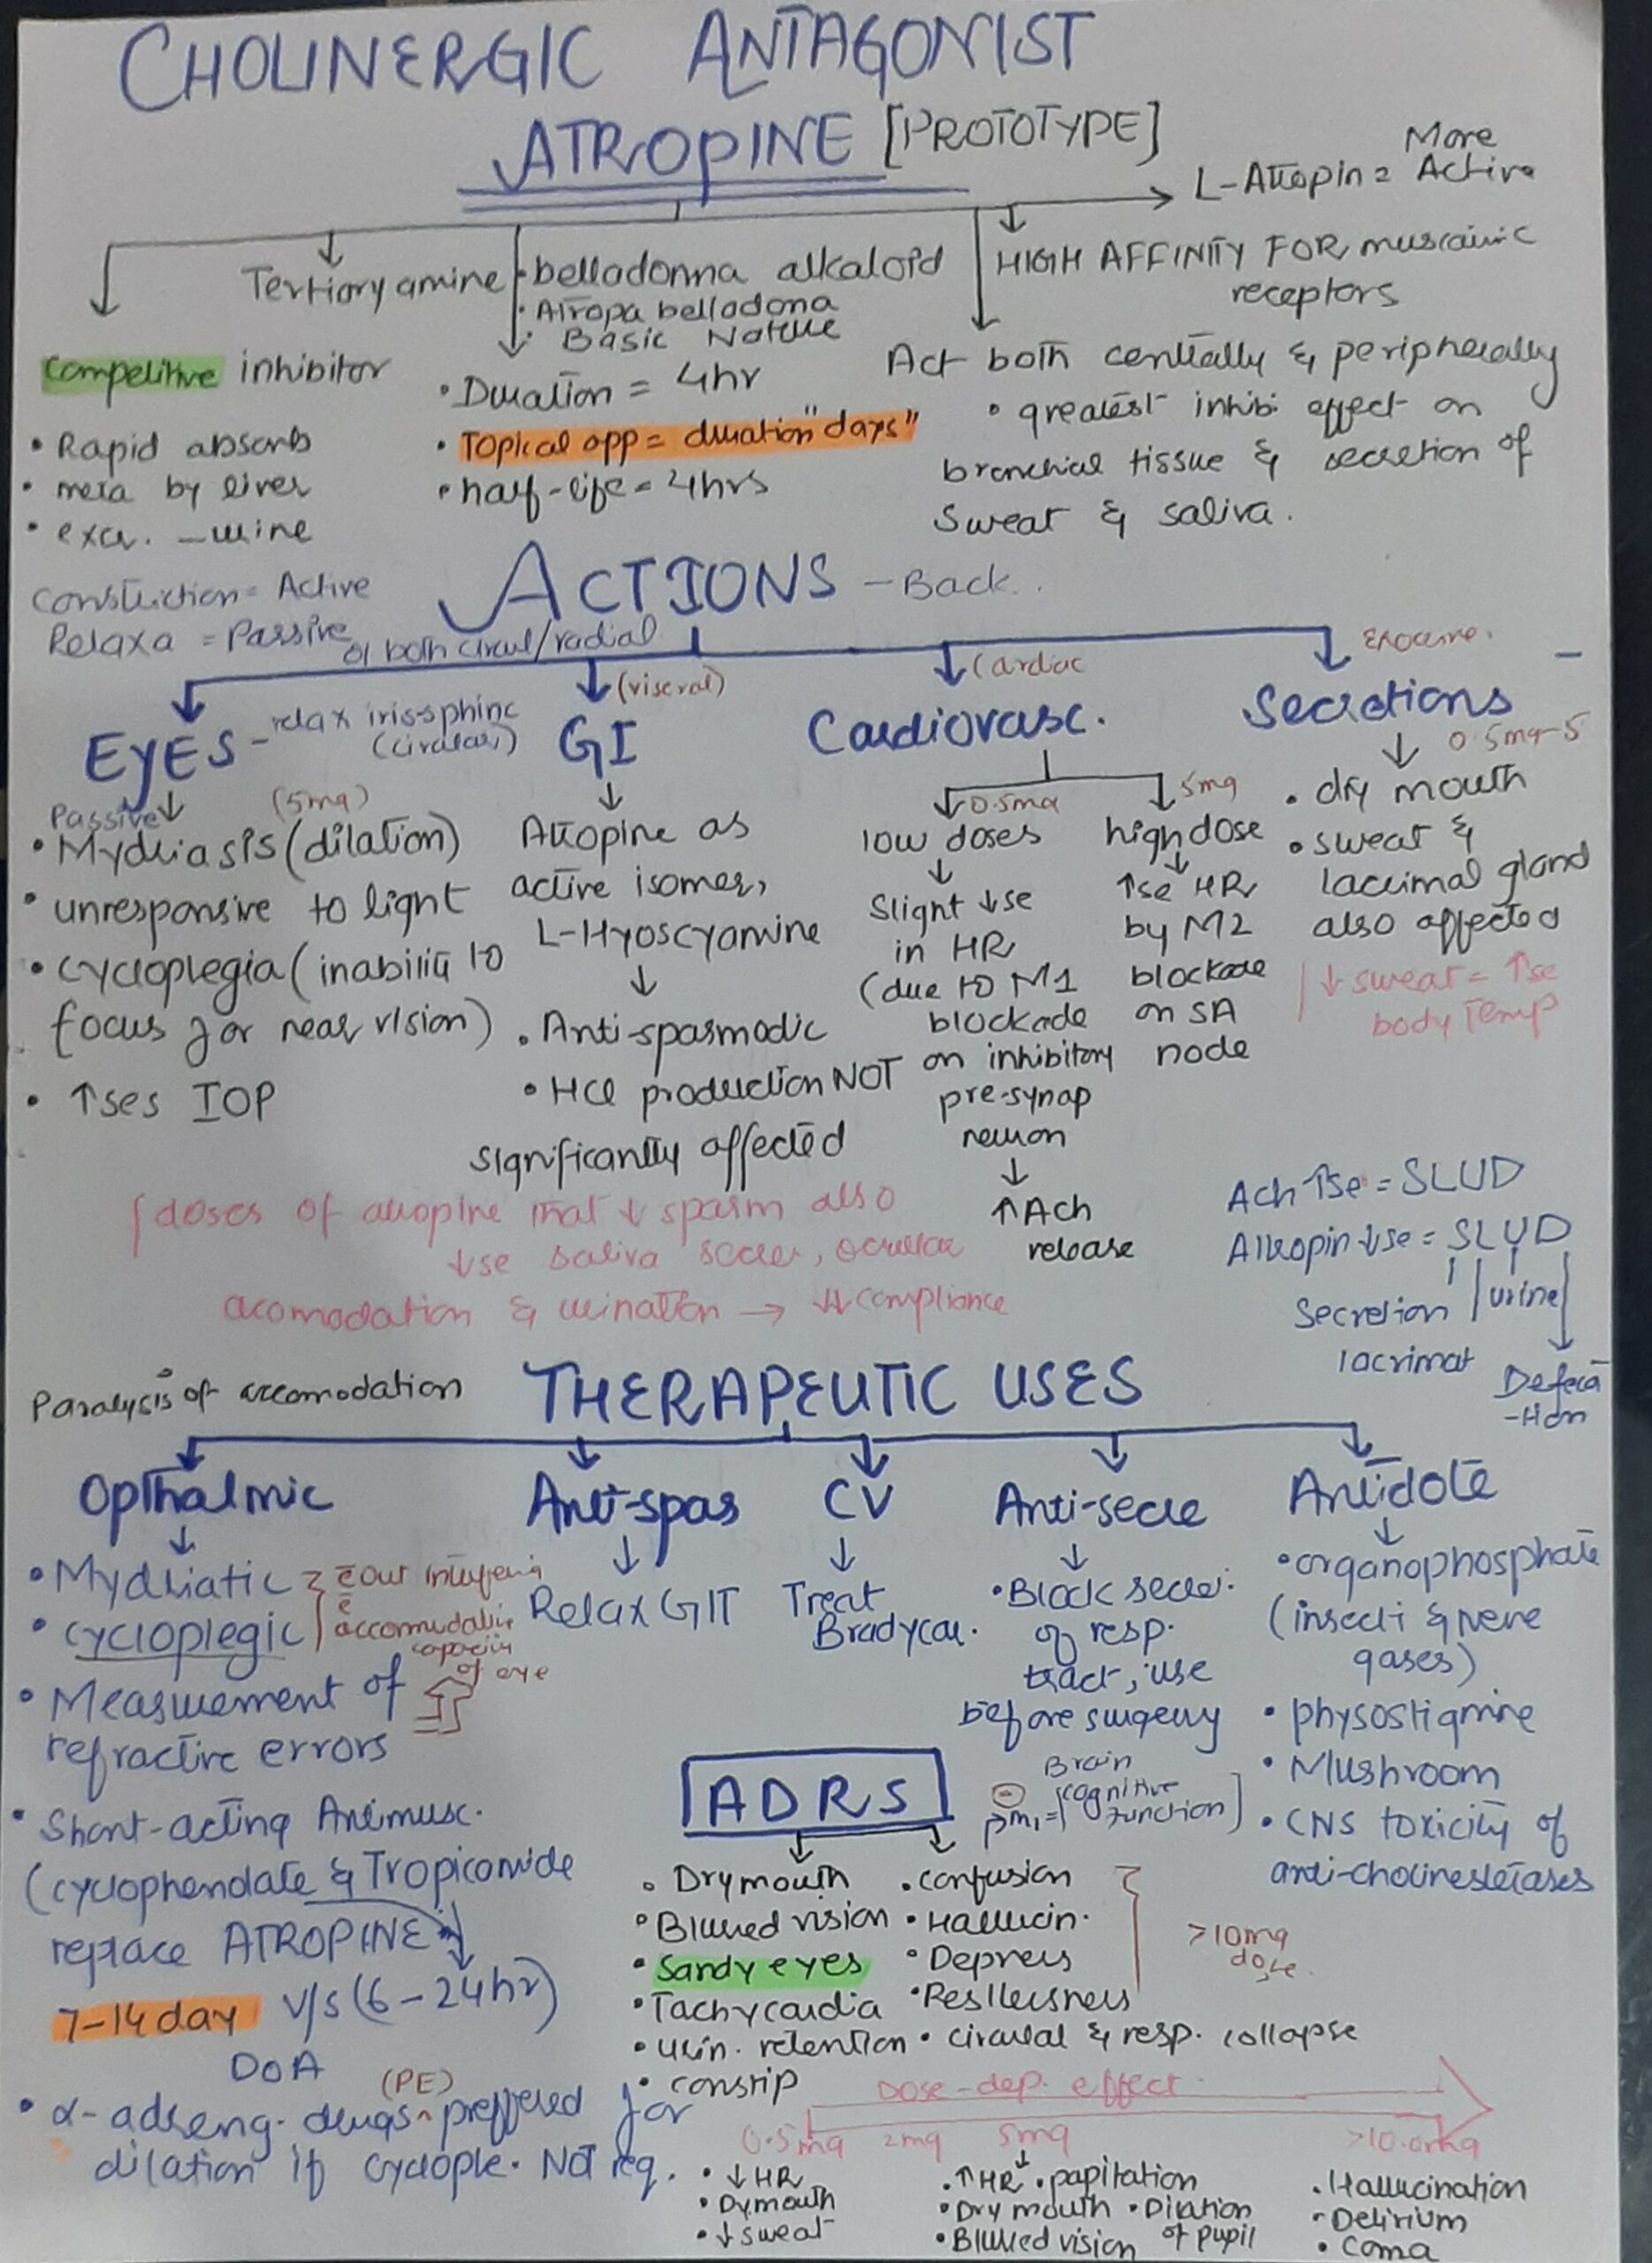 CHOLINERGIC ANTAGONIST
ATROPINE [PROTOTYPE]
L-Atropin = More Active
Competitive inhibitor
• Rapid absorb
• meta by liver
• excr. - urine
Tertiory amine
belladonna alkaloid
• Atropa belladona
• Basic Nature
• Duration = 4hr
• Topical app = duration "days"
• half-life = 4hrs
HIGH AFFINITY FOR muscarinic
receptors
Act both centrally & peripherally
• greatest inhibi effect on
bronchial tissue & secretion of
Sweat & saliva.
Constriction = Active
Relaxa = Passive
of both circul/radial
ACTIONS - Back.
EYES - relax iris sphinc
(circular)
Passive
(5mg)
• Mydriasis (dilation)
• unresponsive to light
• cycloplegia (inability to
focus for near vision)
• ↑ses IOP
(visceral)
GI
Atropine as
active isomer,
L-Hyoscyamine
• Anti-spasmodic
• HCl production NOT
significantly affected
doses of atropine that ↓ spasm also
↓se saliva secre, occular
acomodation & urination → ↓↓ compliance
(cardiac
Cardiovasc.
0.5mg
low doses
Slight ↓se
in HR
(due to M1
blockade
on inhibitory
pre-synap
neuron
↑ Ach
release
5mg
high dose
↑se HR
by M2
blockade
on SA
node
Exocrine.
Secretions
0.5mg-5
• dry mouth
• sweat &
lacrimal gland
also affected
↓ sweat = ↑se
body Temp
Ach ↑se = SLUD
Atropin ↓se = SLUD
Secretion
lacrimat
urine
Defeca
-tion
Paralysis of accomodation
THERAPEUTIC USES
Opthalmic
• Mydriatic
• cycloplegic
c̄out interfering
c̄ accomodative
capacity
of eye
• Measurement of
refractive errors
• Short-acting Antimusc.
(cyclophendate & Tropicamide
replace ATROPINE
7-14 day v/s (6-24hr)
DOA
(PE)
• α-adreng. drugs ^ preffered for
dilation if cyclople. Not req.
Anti-spas
Relax GIT
CV
Treat
Bradycar.
Anti-secre
• Block secre.
of resp.
tract, use
before surgery
Antidote
• organophosphate
(insecti & nerve
gases)
• physostigmine
• Mushroom
• CNS toxicity of
anti-cholinesterases
ADRS
Brain
M1 = [cognitive
function]
• Dry mouth
• Blurred vision
• Sandy eyes
• Tachycardia
• urin. retention
• constip
• confusion
• Hallucin.
• Depress
• Restlessness
• circural & resp. collapse
>10mg
dose.
Dose-dep. effect
0.5mg 2mg 5mg >10.0mg
• ↓ HR
• Dymouth
• ↓ sweat
• ↑HR • papitation
• Dry mouth • Dilation
• Blurred vision of pupil
• Hallucination
• Delirium
• Coma